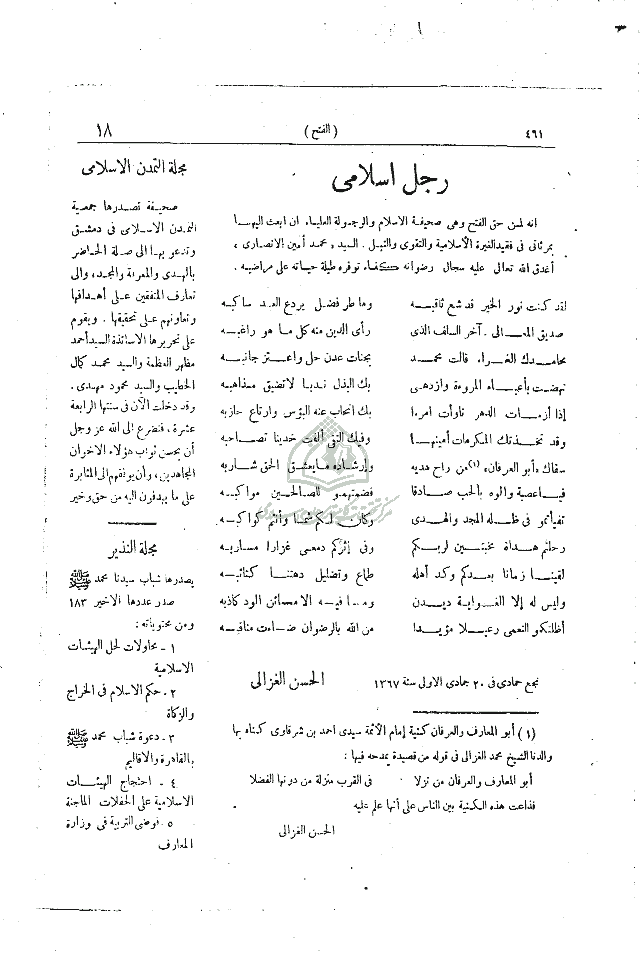 ٤٦١
( الفتح )
١٨
رجل اسلامى
انه لمن حق الفتح وهى صحيفة الاسلام والرجولة العليا، ان ابعث اليها
بمرثاتى فى فقيد الغيرة الاسلامية والتقوى والنبل. السيد، محمد أمين الانصارى،
أغدق الله تعالى عليه سجال رضوانه كفاء توفره طيلة حياته على مراضيه.
لقد كنت نور الخير قد شع ثاقبه وماطر فضل يردع العد ساكبه
صديق المعالى. آخر السلف الذى رأى الدين منه كل ما هو راغبه
محامدك الغراء قالت محمد بجنات عدن حل واعتز جانبه
نهضت بأعباء المروءة وازدهى بك البذل نديا لا تضيق مذاهبه
إذا أزمات الدهر ناوأت امرءا بك انجاب عنه البؤس وارتاع حازبه
وقد تخذتك المكرمات أمينها وفيك التقى ألفت خدينا تصاحبه
سقاك، أبو العرفان،(١) من راح هديه وإرشاده ما يعشق الحق شاربه
فيا عصبة والوه بالحب صادقا فضمتهمو للصالحين مواكبه
تفيأتمو فى ظله المجد والهدى وكان لكم شمسا وأنتم كواكبه
رحلتم هداة مخبتين لربكم وفى إثركم دمعى غزارا مساربه
لقينا زمانا بعدكم وكد أهله طماع وتضليل دهتنا كتائبه
وليس له إلا الغواية ديدن وما فيه الا مائن الود كاذبه
أظلتكمو النعمى رعيلا مؤيدا من الله بالرضوان ضاءت مناقبه
نجع حمادى فى ٢٠ جمادى الاولى سنة ١٣٦٧ الحسن الغزالى
(١) أبو المعارف والعرفان كنية إمام الأئمة سيدى احمد بن شرقاوى كناه بها
والدنا الشيخ محمد الغزالى فى قوله من قصيدة يمدحه فيها:
أبو المعارف والعرفان من نزلا فى القرب منزلة من دونها الفضلا
فذاعت هذه الكنية بين الناس على أنها علم عليه
الحسن الغزالى
مجلة التمدن الاسلامى
صحيفة تصدرها جمعية
التمدن الاسلامى فى دمشق
وتدعو بها الى صلة الحاضر
بالهدى والمعرفة والمجد، والى
تعارف المتفقين على أهدافها
وتعاونهم على تحقيقها. ويقوم
على تحريرها الاساتذة السيد أحمد
مظهر العظمة والسيد محمد كمال
الخطيب والسيد محمود مهدى.
وقد دخلت الآن فى سنتها الرابعة
عشرة، فنضرع الى الله عز وجل
أن يحسن ثواب هؤلاء الاخوان
المجاهدين، وأن يوفقهم الى المثابرة
على ما يهدفون اليه من حق وخير
مجلة النذير
يصدرها شباب سيدنا محمد ﷺ
صدر عددها الاخير ١٨٣
ومن محتوياته:
١ - محاولات لحل الهيئات
الاسلامية
٢ - حكم الاسلام فى الخراج
والزكاة
٣ - دعوة شباب محمد ﷺ
بالقاهرة والاقاليم
٤ - احتجاج الهيئات
الاسلامية على الحفلات الماجنة
٥ - فوضى التربية فى وزارة
المعارف